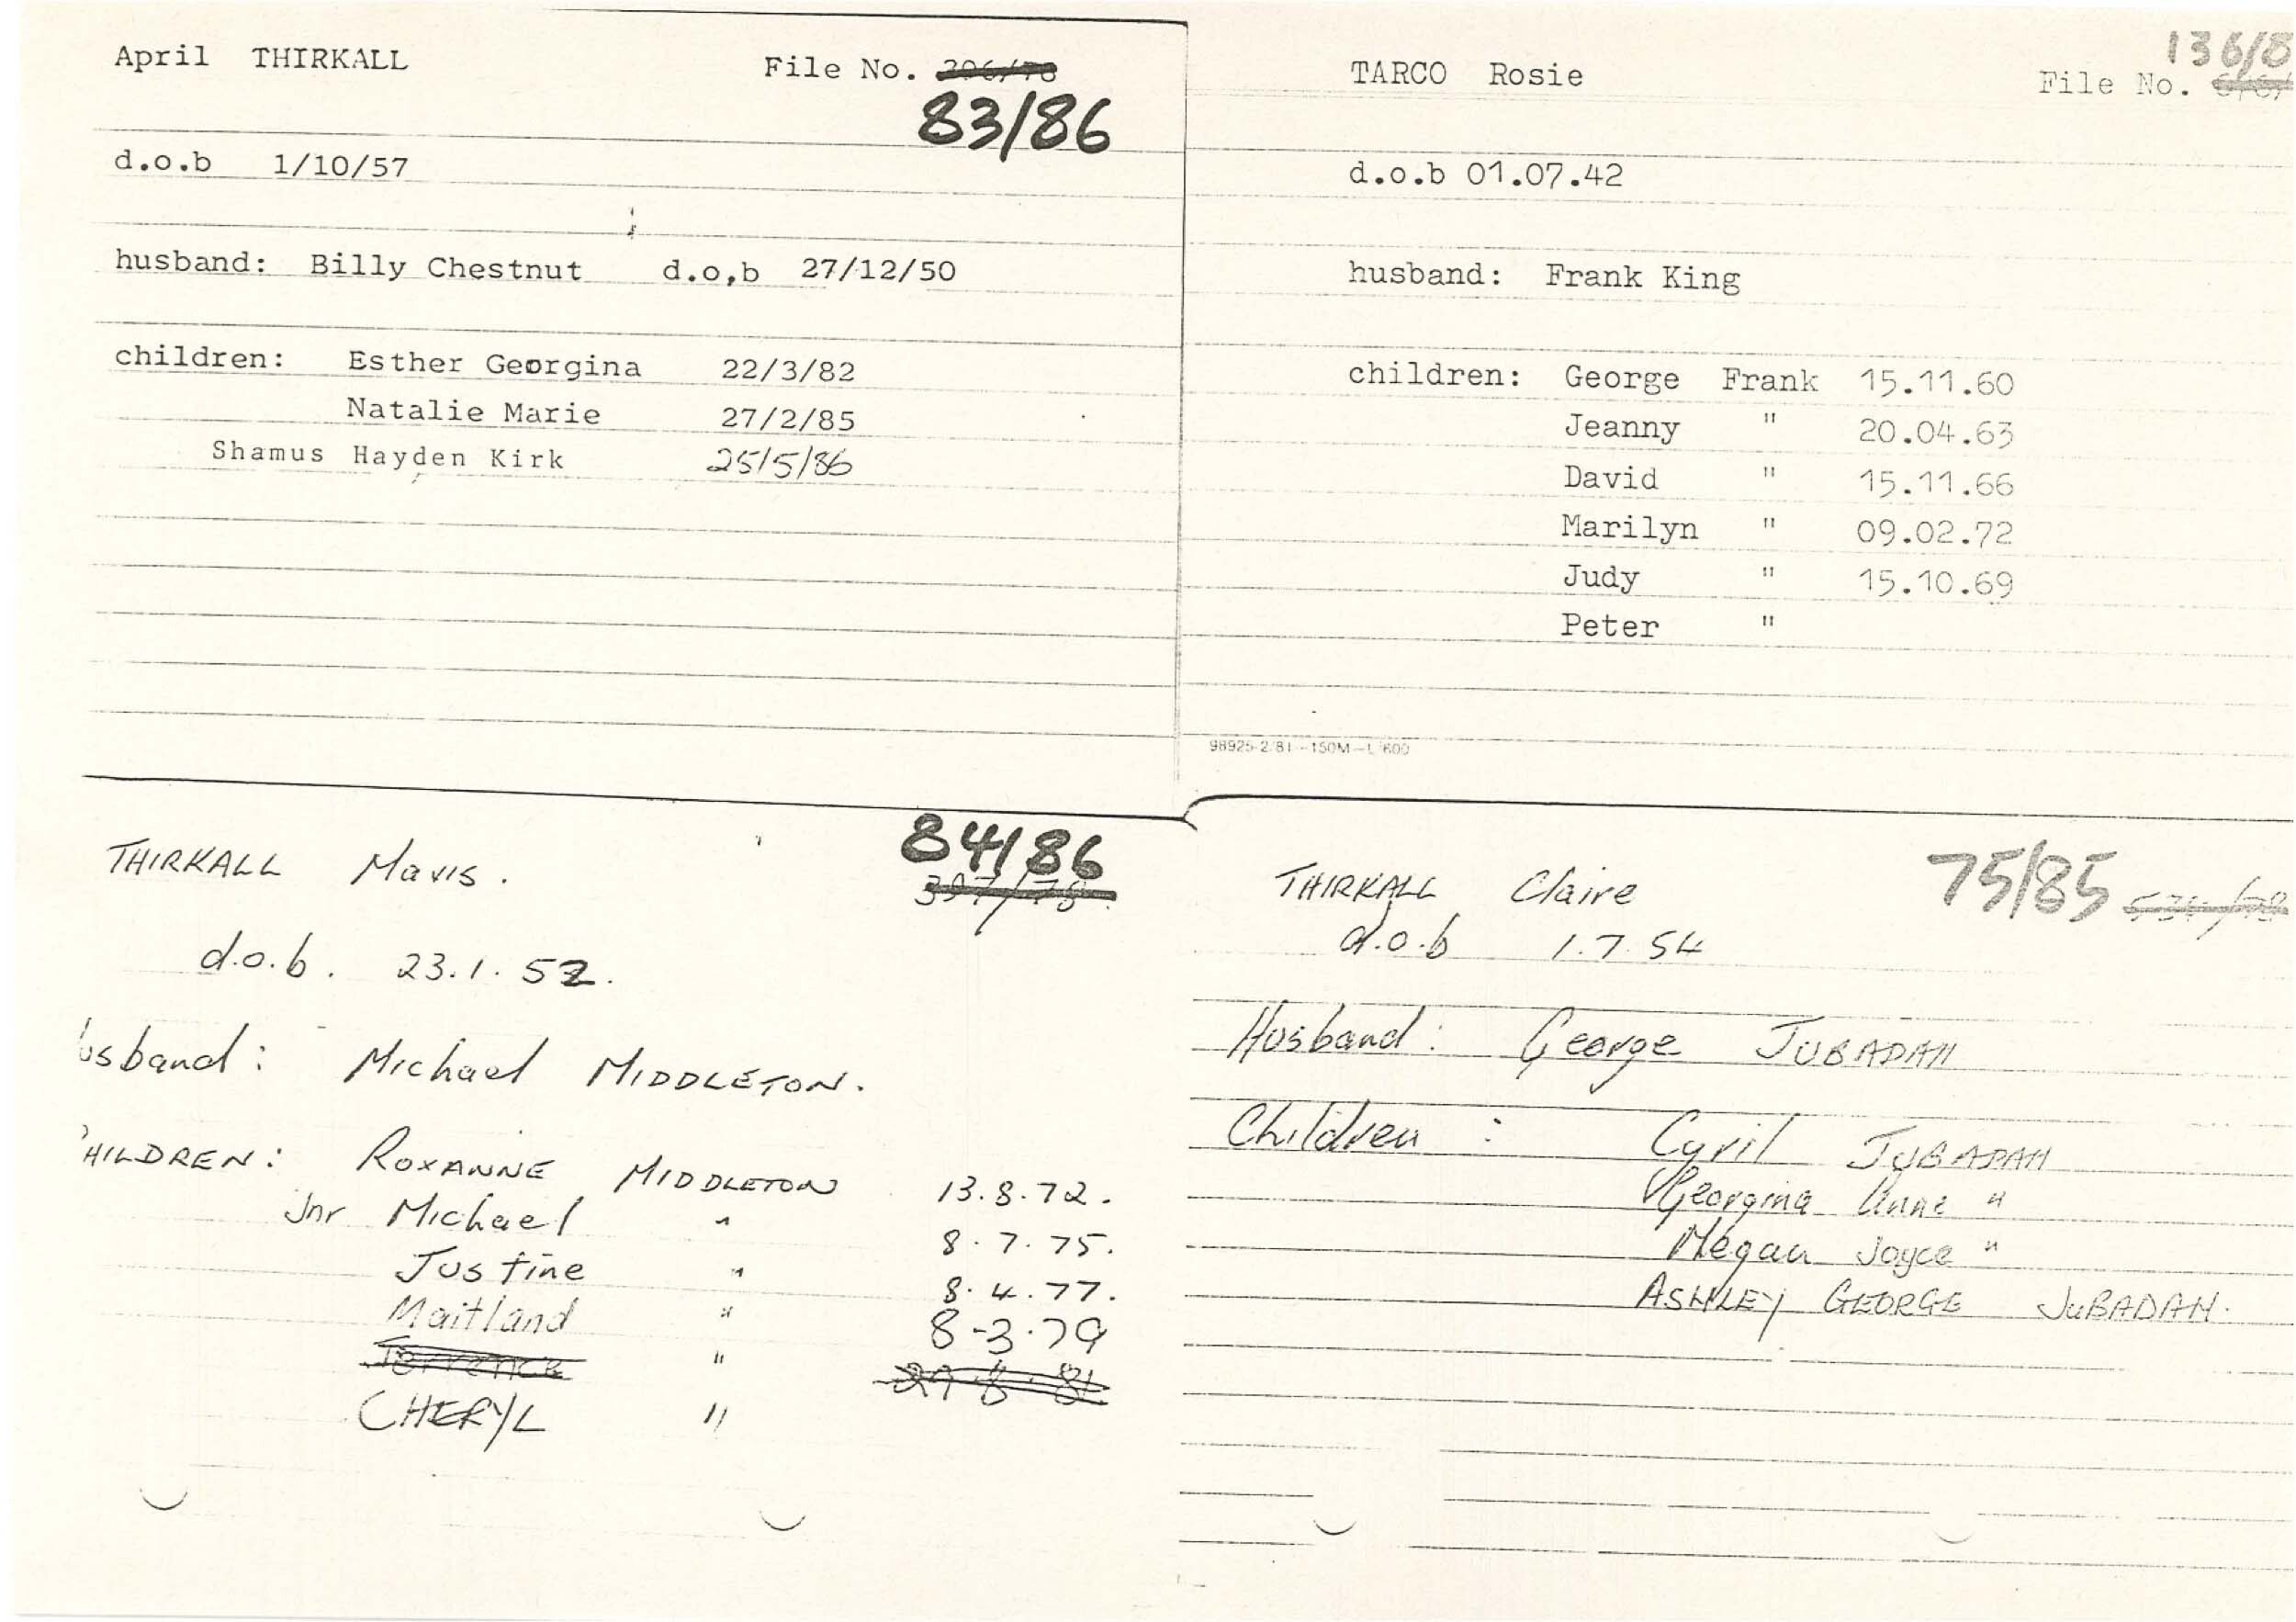 April THIRKALL File No. 396/78
83/86
d.o.b 1/10/57
husband: Billy Chestnut d.o,b 27/12/50
children: Esther Georgina 22/3/82
Natalie Marie 27/2/85
Shamus Hayden Kirk 25/5/86
136/8
TARCO Rosie File No.
d.o.b 01.07.42
husband: Frank King
children: George Frank 15.11.60
Jeanny " 20.04.63
David " 15.11.66
Marilyn " 09.02.72
Judy " 15.10.69
Peter "
98925-2/81-150M-L/600
84/86
THIRKALL Mavis. 397/78
d.o.b. 23.1.52.
usband: Michael MIDDLETON.
HILDREN: ROXANNE MIDDLETON 13.8.72.
Jnr Michael " 8.7.75.
Justine " 8.4.77.
Maitland " 8-3.79
Terrence " 29.8.81
CHERYL "
THIRKALL Claire 75/85
d.o.b 1.7.54
Husband: George JUBADAH
Children: Cyril JUBADAH
Georgina Anne "
Megan Joyce "
ASHLEY GEORGE JUBADAH.